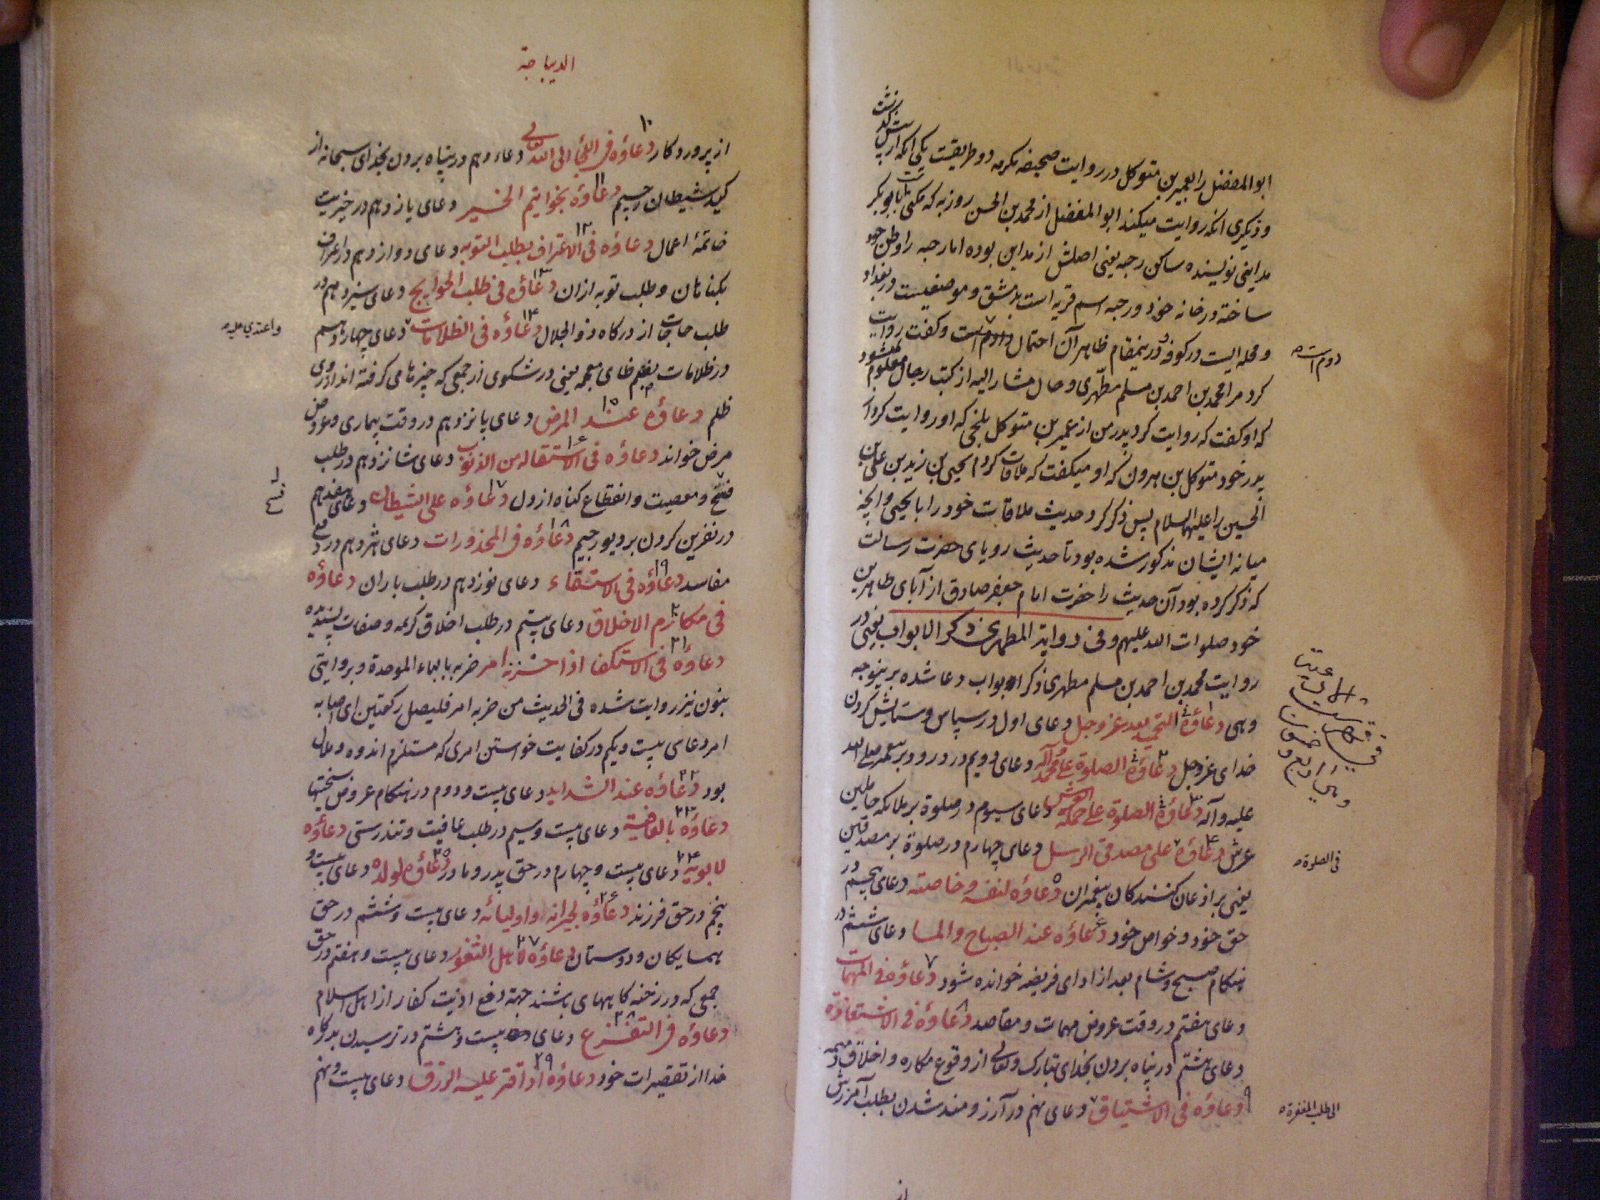 ابوالمفضل را بعمیر بن متوکل در روایت صحیفه مکرمه دو طریقست یکی آنکه
و دیگری آنکه روایت میکند ابوالمفضل از محمد بن الحسن روزبه که مکنی بابوبکر
مداینی نویسنده ساکن رحبه یعنی اصلش از مداین بوده اما رحبه را وطن خود
ساخته در خانه خود و رحبه اسم قریه است بدمشق و موضعیست در بغداد
و محله ایست در کوفه و در ینمقام ظاهر آن احتمال دوم است و گفت روایت
دوم است
کرد مرا محمد بن احمد بن مسلم مطهری و حال مشار الیه از کتب رجال معلوم
که او گفت که روایت کرد پدر من از عمیر بن متوکل بلخی که او روایت کرد از
پدر خود متوکل بن هرون که او میگفت که ملاقات کردم یحیی بن زید بن علی بن
الحسین را علیهما السلام پس ذکر کرد حدیث ملاقات خود را با یحیی و آنچه
میانه ایشان مذکور شده بود تا حدیث رویای حضرت رسالت
که ذکر کرده بود آن حدیث را حضرت امام جعفر صادق از آبای طاهرین
خود صلوات الله علیهم و فی روایة المطهری ذکر الابواب یعنی در
روایت محمد بن احمد بن مسلم مطهری ذکر ابواب دعا شده برینوجه
وهی دعاؤه التحمید لله عز و جل دعای اول در سپاس و ستایش کردن
خدای عز و جل دعاؤه الصلوة علی محمد و آله دعای دویم در درود بر پیغمبر صلی الله
علیه و آله دعاؤه الصلوة علی حملة العرش دعای سیوم در صلوة بر ملائکه حاملین
عرش دعاؤه علی مصدقی الرسل دعای چهارم در صلوة بر مصدقین
فی الصلوة
یعنی بر اذعان کنندگان پیغمبران دعاؤه لنفسه و خاصته دعای پنجم در
حق خود و خواص خود دعاؤه عند الصباح والمسا دعای ششم در
هنگام صبح و شام بعد از ادای فریضه خوانده شود دعاؤه فی المهمات
دعای هفتم در وقت عروض مهمات و مقاصد دعاؤه فی الاستعاذة
دعای هشتم در پناه بردن بخدای تبارک و تعالی از وقوع مکاره و اخلاق ذمیمه
دعاؤه فی الاشتیاق دعای نهم در آرزومند شدن بطلب آمرزش
الی طلب المغفرة
از
الدیباجة
از پروردکار دعاؤه فی اللجأ الی الله تعالی دعاء دهم در پناه بردن بخدای سبحانه از
کید شیطان رجیم دعاؤه بخواتیم الخیر دعای یازدهم در خیریت
خاتمهٔ اعمال دعاؤه فی الاعتراف بطلب التوبه دعای دوازدهم در اعتراف
بکناهان و طلب توبه از آن دعاؤه فی طلب الحوایج دعای سیزدهم در
طلب حاجات از درکاه ذوالجلال دعاؤه فی الظلامات دعای چهاردهم
در ظلامات بضم ظای معجمه یعنی در شکوی از جمعی که چیزها می گرفته اند از روی
ظلم دعاؤه عند المرض دعای پانزدهم در وقت بیماری و عروض
مرض خواند دعاؤه فی الاستقاله من الذنوب دعای شانزدهم در طلب
فسخ و معصیت و انقطاع کناه از ول دعاؤه علی الشیطان دعای هفدهم
در نفرین کردن بر دیو رجیم دعاؤه فی المحذورات دعای هژدهم در دفع
مفاسد دعاؤه فی الاستسقاء دعای نوزدهم در طلب باران دعاؤه
فی مکارم الاخلاق دعای بیستم در طلب اخلاق کریمه و صفات پسندیده
دعاؤه فی الاستکفا اذا حزنه امر حزبه بالباء الموحدة و بروایتی
بنون نیز روایت شده فی الحدیث من حزبه امر فلیصل رکعتین ای اصابه
امر دعای بیست و یکم در کفایت خواستن امری که مستلزم اندوه و ملال
بود دعاؤه عند الشداید دعای بیست و دوم در هنکام عروض سختیها
دعاؤه بالعافیة دعای بیست و سیم در طلب عافیت و تندرستی دعاؤه
لابویه دعای بیست و چهارم در حق پدر و مادر دعاؤه لولده دعای بیست و
پنجم در حق فرزند دعاؤه لجیرانه و اولیائه دعای بیست و ششم در حق
همسایکان و دوستان دعاؤه لاهل الثغور دعای بیست و هفتم در حق
جمعی که در رخنه کاههای باشند جهة دفع اذیت کفار از اهل اسلام
دعاؤه فی التفزع دعای بیست و هشتم در ترسیدن بدرکاه
خدا از تقصیرات خود دعاؤه اذا قتر علیه الرزق دعای بیست و نهم